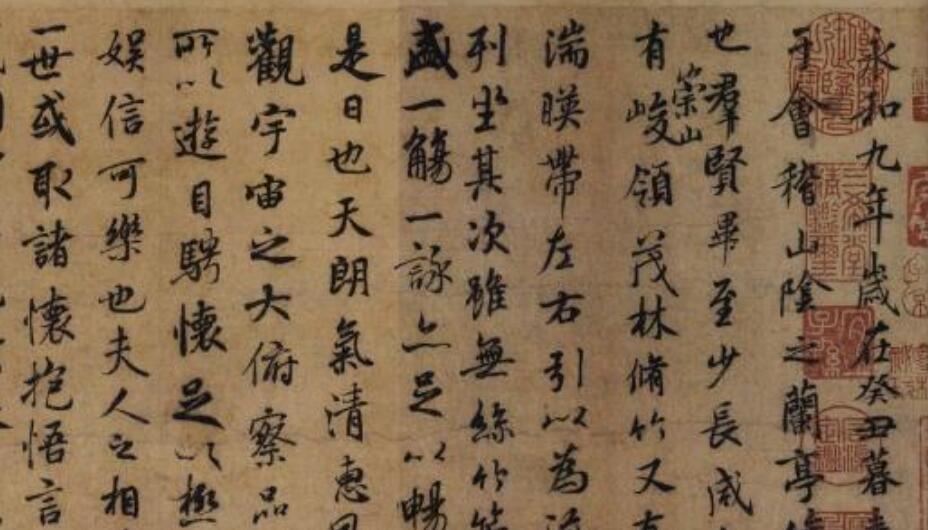 永和九年歲在癸丑暮
于會稽山陰之蘭亭
也羣賢畢至少長咸
有崇山峻領茂林脩竹又有
湍暎帶左右引以為流
列坐其次雖無絲竹管
盛一觴一詠亦足以暢
是日也天朗氣清惠風
觀宇宙之大俯察品
所以遊目騁懷足以極
娛信可樂也夫人之相
一世或取諸懷抱悟言